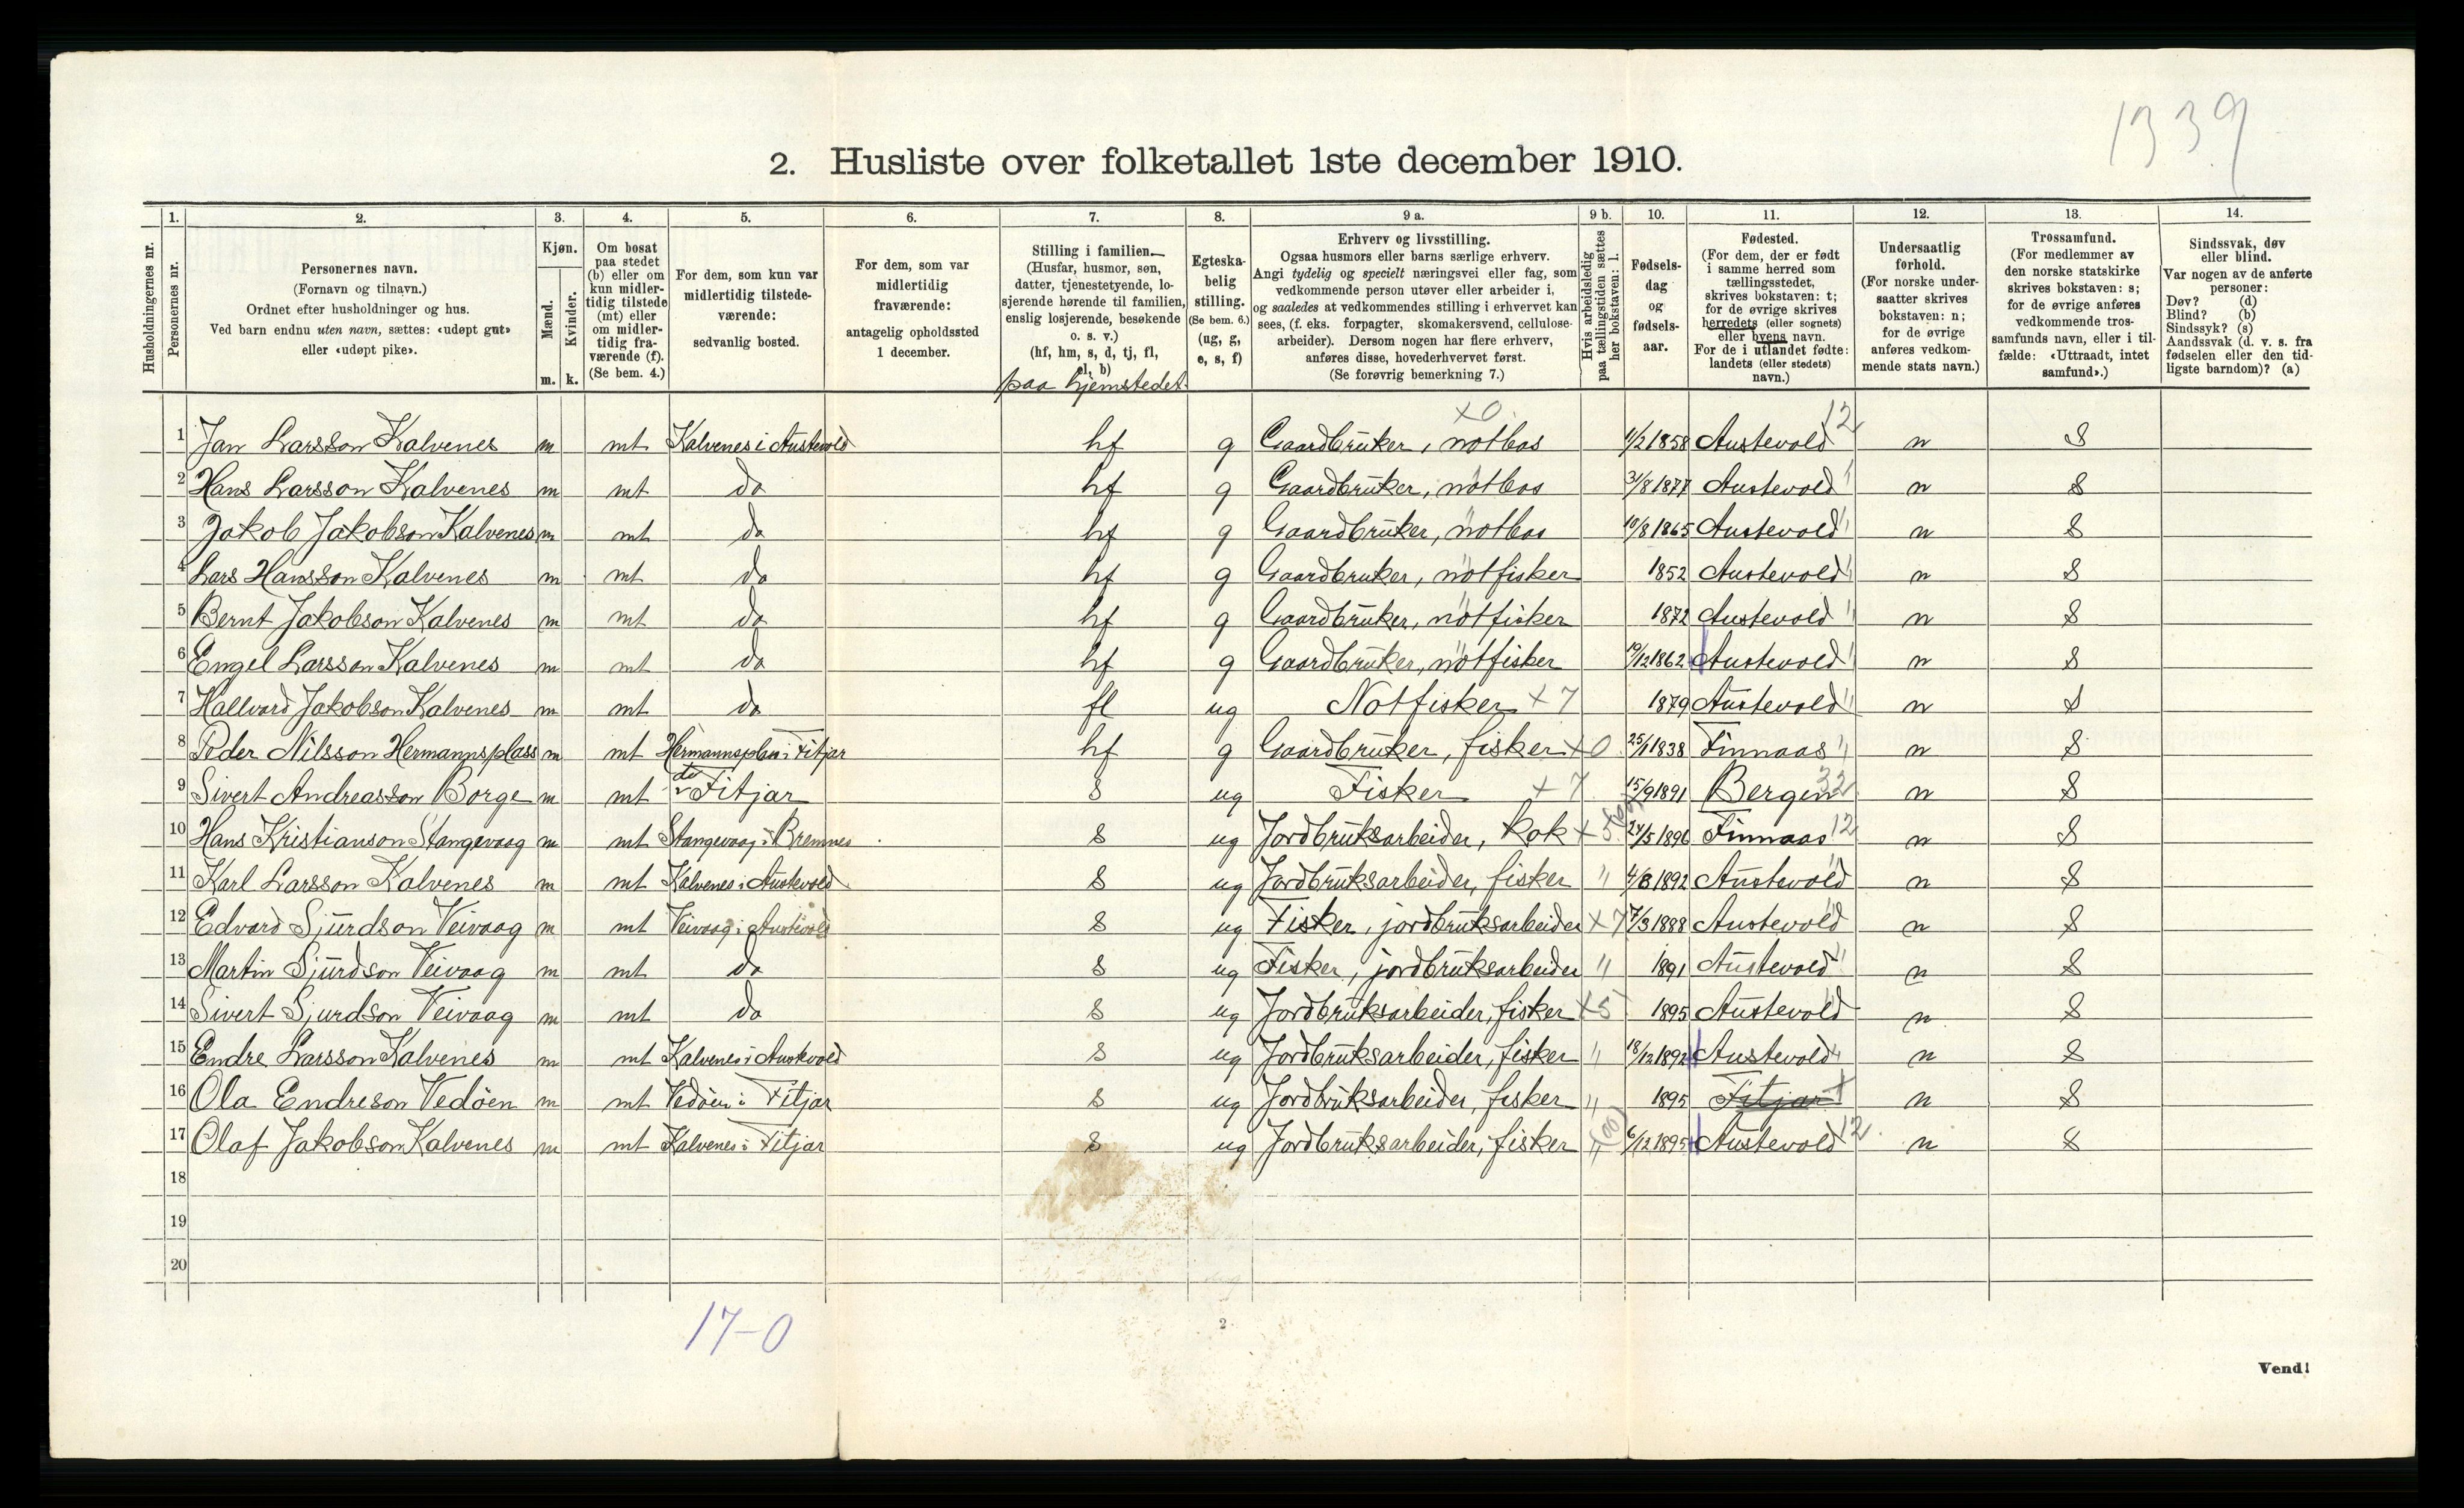 1339
2. Husliste over folketallet 1ste december 1910.
1. 2. 3. 4. 5. 6. 7. 8. 9 a. 9 b. 10. 11. 12. 13. 14.
Husholdningernes nr.
Personernes nr.
Personernes navn.
(Fornavn og tilnavn.)
Ordnet efter husholdninger og hus.
Ved barn endnu uten navn, sættes: «udøpt gut»
eller «udøpt pike».
Kjøn.
Mænd.
Kvinder.
m. k.
Om bosat
paa stedet
(b) eller om
kun midler-
tidig tilstede
(mt) eller
om midler-
tidig fra-
værende (f).
(Se bem. 4.)
For dem, som kun var
midlertidig tilstede-
værende:
sedvanlig bosted.
For dem, som var
midlertidig
fraværende:
antagelig opholdssted
1 december.
Stilling i familien.
(Husfar, husmor, søn,
datter, tjenestetyende, lo-
sjerende hørende til familien,
enslig losjerende, besøkende
o. s. v.)
(hf, hm, s, d, tj, fl,
el, b)
paa hjemstedet
Egteska-
belig
stilling.
(Se bem. 6.)
(ug, g,
e, s, f)
Erhverv og livsstilling.
Ogsaa husmors eller barns særlige erhverv.
Angi tydelig og specielt næringsvei eller fag, som
vedkommende person utøver eller arbeider i,
og saaledes at vedkommendes stilling i erhvervet kan
sees, (f. eks. forpagter, skomakersvend, cellulose-
arbeider). Dersom nogen har flere erhverv,
anføres disse, hovederhvervet først.
(Se forøvrig bemerkning 7.)
Hvis arbeidsledig
paa tællingstiden sættes
her bokstaven: l.
Fødsels-
dag
og
fødsels-
aar.
Fødested.
(For dem, der er født
i samme herred som
tællingsstedet,
skrives bokstaven: t;
for de øvrige skrives
herredets (eller sognets)
eller byens navn.
For de i utlandet fødte:
landets (eller stedets)
navn.)
Undersaatlig
forhold.
(For norske under-
saatter skrives
bokstaven: n;
for de øvrige
anføres vedkom-
mende stats navn.)
Trossamfund.
(For medlemmer av
den norske statskirke
skrives bokstaven: s;
for de øvrige anføres
vedkommende tros-
samfunds navn, eller i til-
fælde: «Uttraadt, intet
samfund».)
Sindssvak, døv
eller blind.
Var nogen av de anførte
personer:
Døv? (d)
Blind? (b)
Sindssyk? (s)
Aandssvak (d. v. s. fra
fødselen eller den tid-
ligste barndom)? (a)
x0 12
1 Jan Larsson Kalvenes m mt Kalvenes i Austevold hf g Gaardbruker, notbas 1/2 1858 Austevold n S
2 Hans Larsson Kalvenes m mt do hf g Gaardbruker, notbas 31/8 1877 Austevold " n S
3 Jakob Jakobson Kalvenes m mt do hf g Gaardbruker, notbas 10/8 1865 Austevold " n S
4 Lars Hansson Kalvenes m mt do hf g Gaardbruker, notfisker 1852 Austevold " n S
5 Bernt Jakobson Kalvenes m mt do hf g Gaardbruker, notfisker 1872 Austevold " n S
6 Engel Larsson Kalvenes m mt do hf g Gaardbruker, notfisker 19/12 1862 Austevold " n S
7 Hallvard Jakobson Kalvenes m mt do fl ug Notfisker x7 1879 Austevold " n S
8 Peder Nilsson Hermannsplass m mt Hermannsplass i Fitjar hf g Gaardbruker, fisker x0 25/1 1838 Finnaas " n S
9 Sivert Andreasson Borge m mt do Fitjar S ug Fisker x7 15/9 1891 Bergen 32 n S
10 Hans Kristianson Stangevaag m mt Stangevaag i Bremnes S ug Jordbruksarbeider, kok x5 24/5 1896 Finnaas 12 n S
11 Karl Larsson Kalvenes m mt Kalvenes i Austevold S ug Jordbruksarbeider, fisker " 4/8 1892 Austevold n S
12 Edvard Sjurdson Veivaag m mt Veivaag i Austevold S ug Fisker, jordbruksarbeider x7 7/3 1888 Austevold n S
13 Martin Sjurdson Veivaag m mt do S ug Fisker, jordbruksarbeider " 1891 Austevold " n S
14 Sivert Sjurdson Veivaag m mt do S ug Jordbruksarbeider, fisker x5 1895 Austevold n S
15 Endre Larsson Kalvenes m mt Kalvenes i Austevold S ug Jordbruksarbeider, fisker " 18/12 1892 Austevold " n S
16 Ola Endreson Vedøen m mt Vedøen i Fitjar S ug Jordbruksarbeider, fisker " 1895 Fitjar t n S
17 Olaf Jakobson Kalvenes m mt Kalvenes i Fitjar S ug Jordbruksarbeider, fisker " 6/12 1895 Austevold 12 n S
18
19
20
17-0
2
Vend!